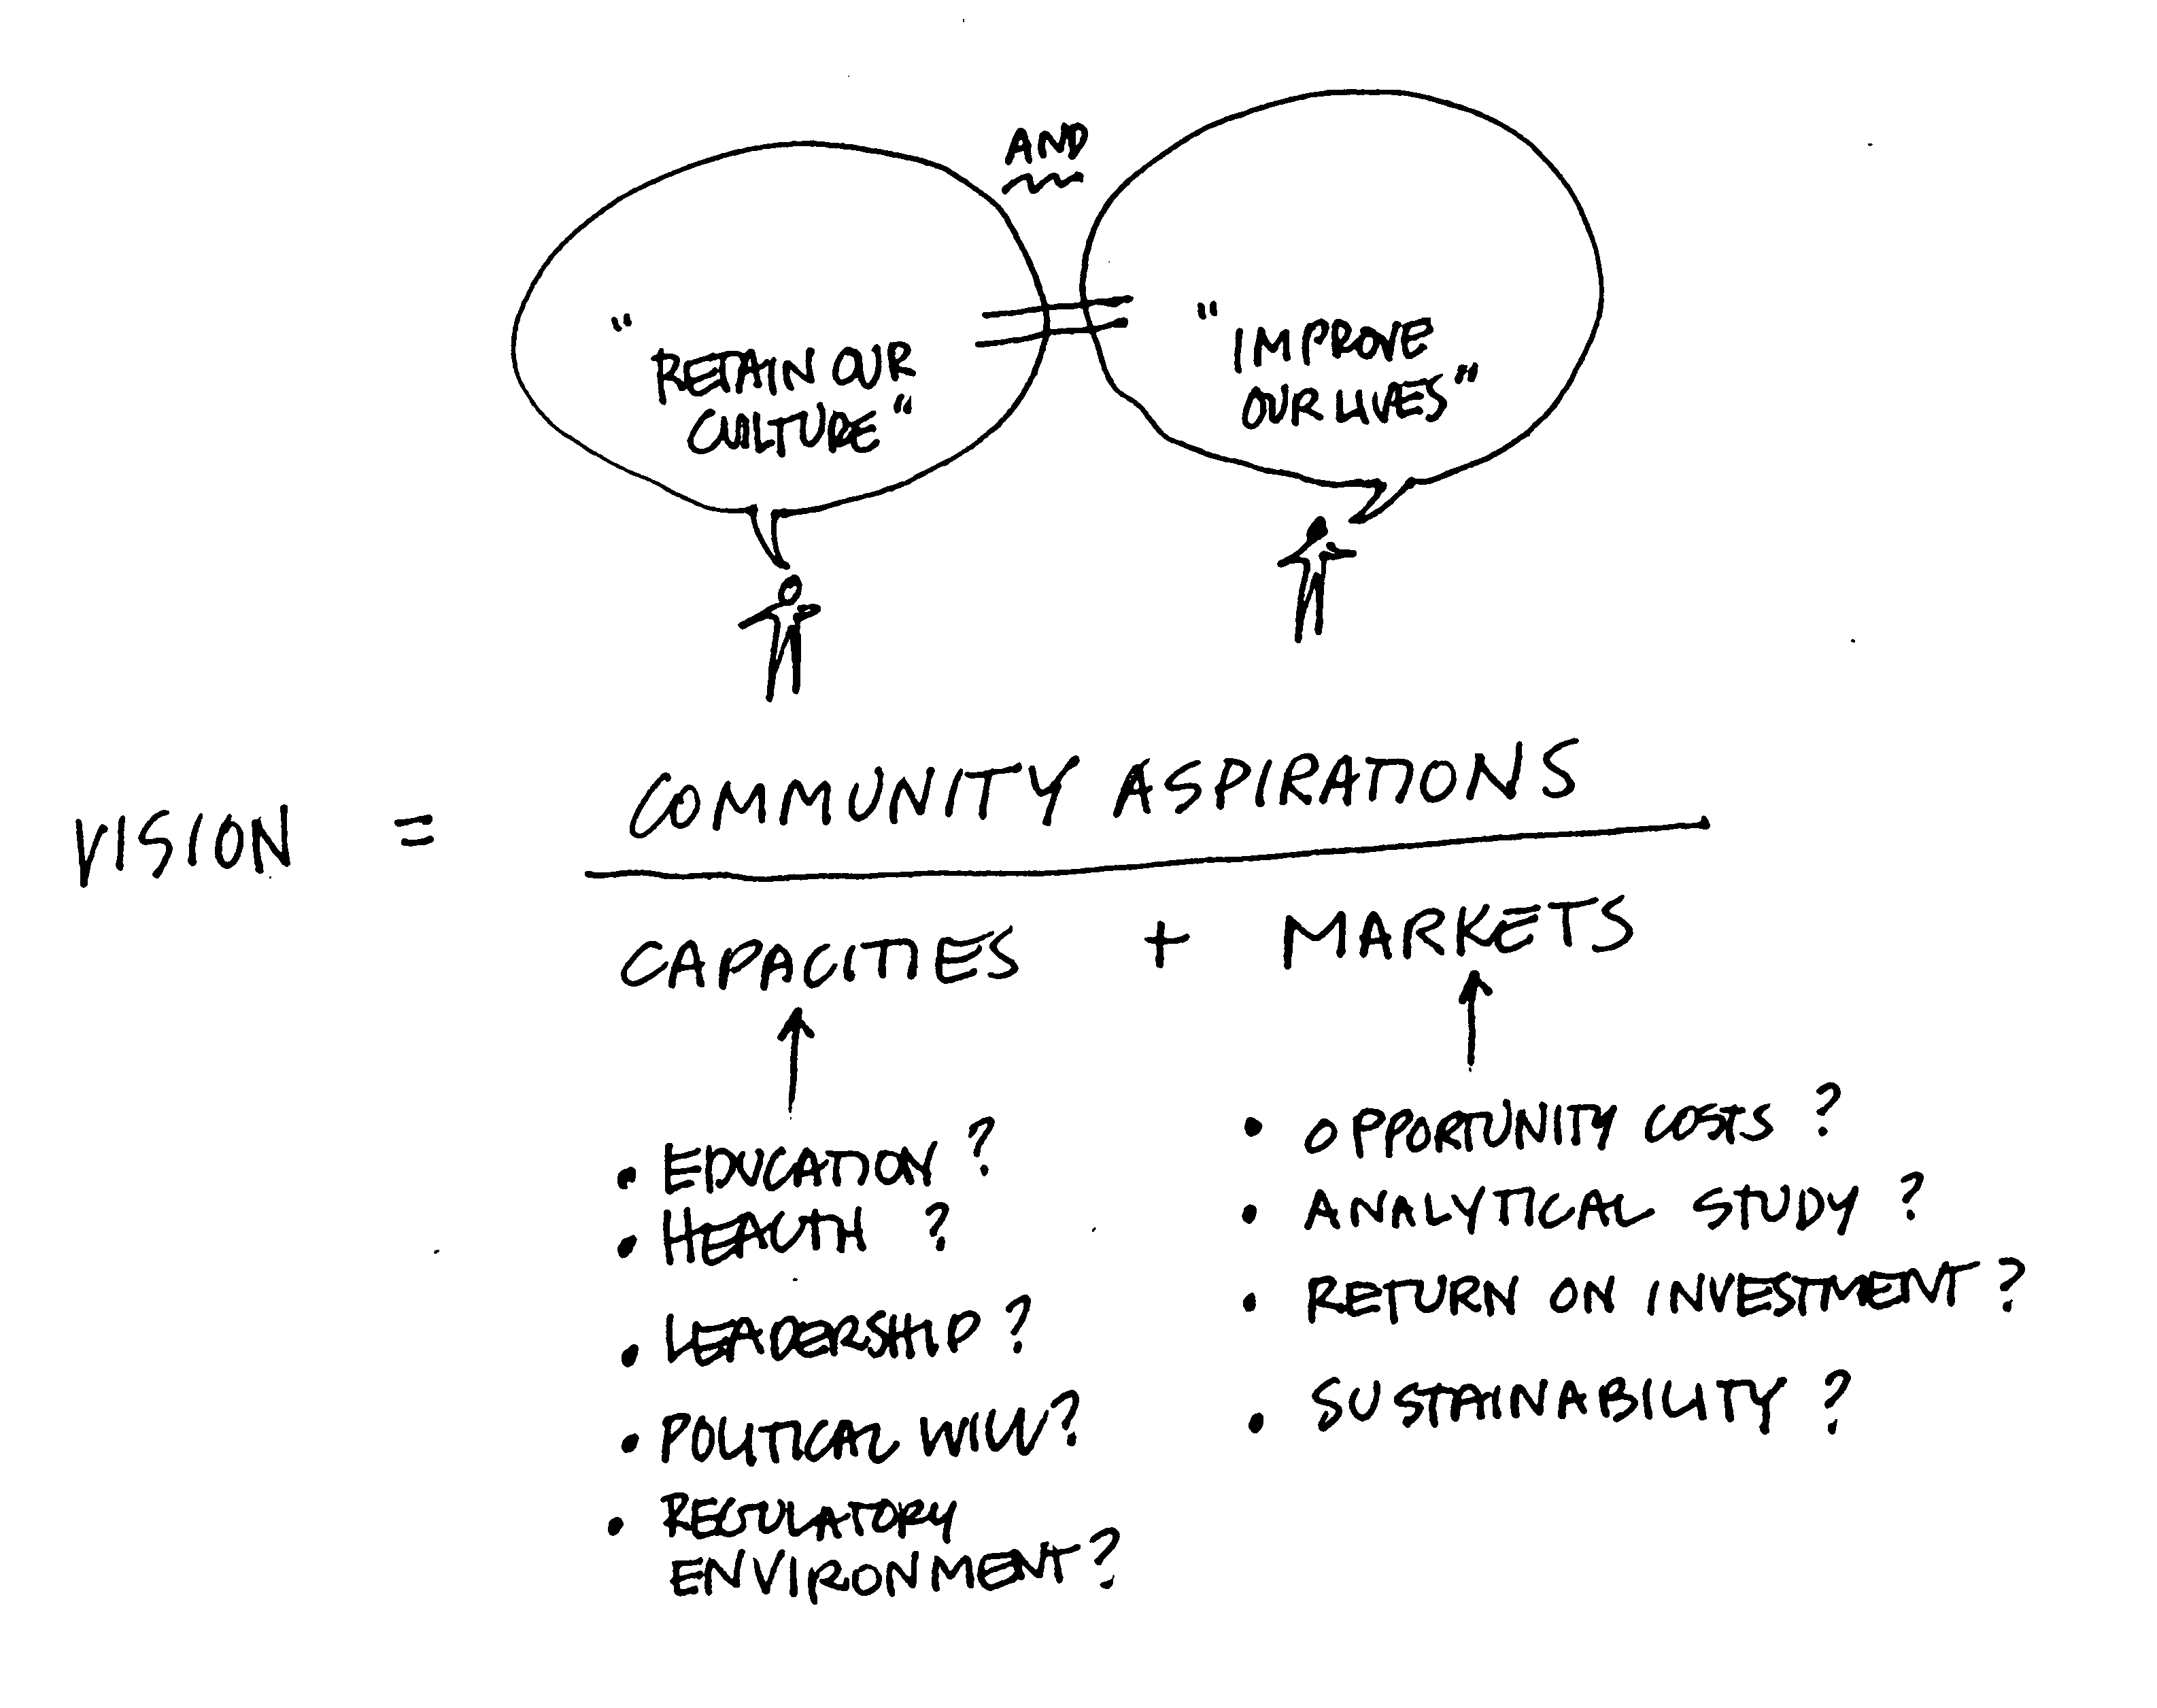 AND
"RETAIN OUR
CULTURE"
"IMPROVE
OUR LIVES"
VISION = COMMUNITY ASPIRATIONS
CAPACITIES + MARKETS
• EDUCATION?
• HEALTH ?
• LEADERSHIP?
• POLITICAL WILL?
• REGULATORY
ENVIRONMENT?
• OPPORTUNITY COSTS ?
• ANALYTICAL STUDY ?
• RETURN ON INVESTMENT ?
• SUSTAINABILITY ?